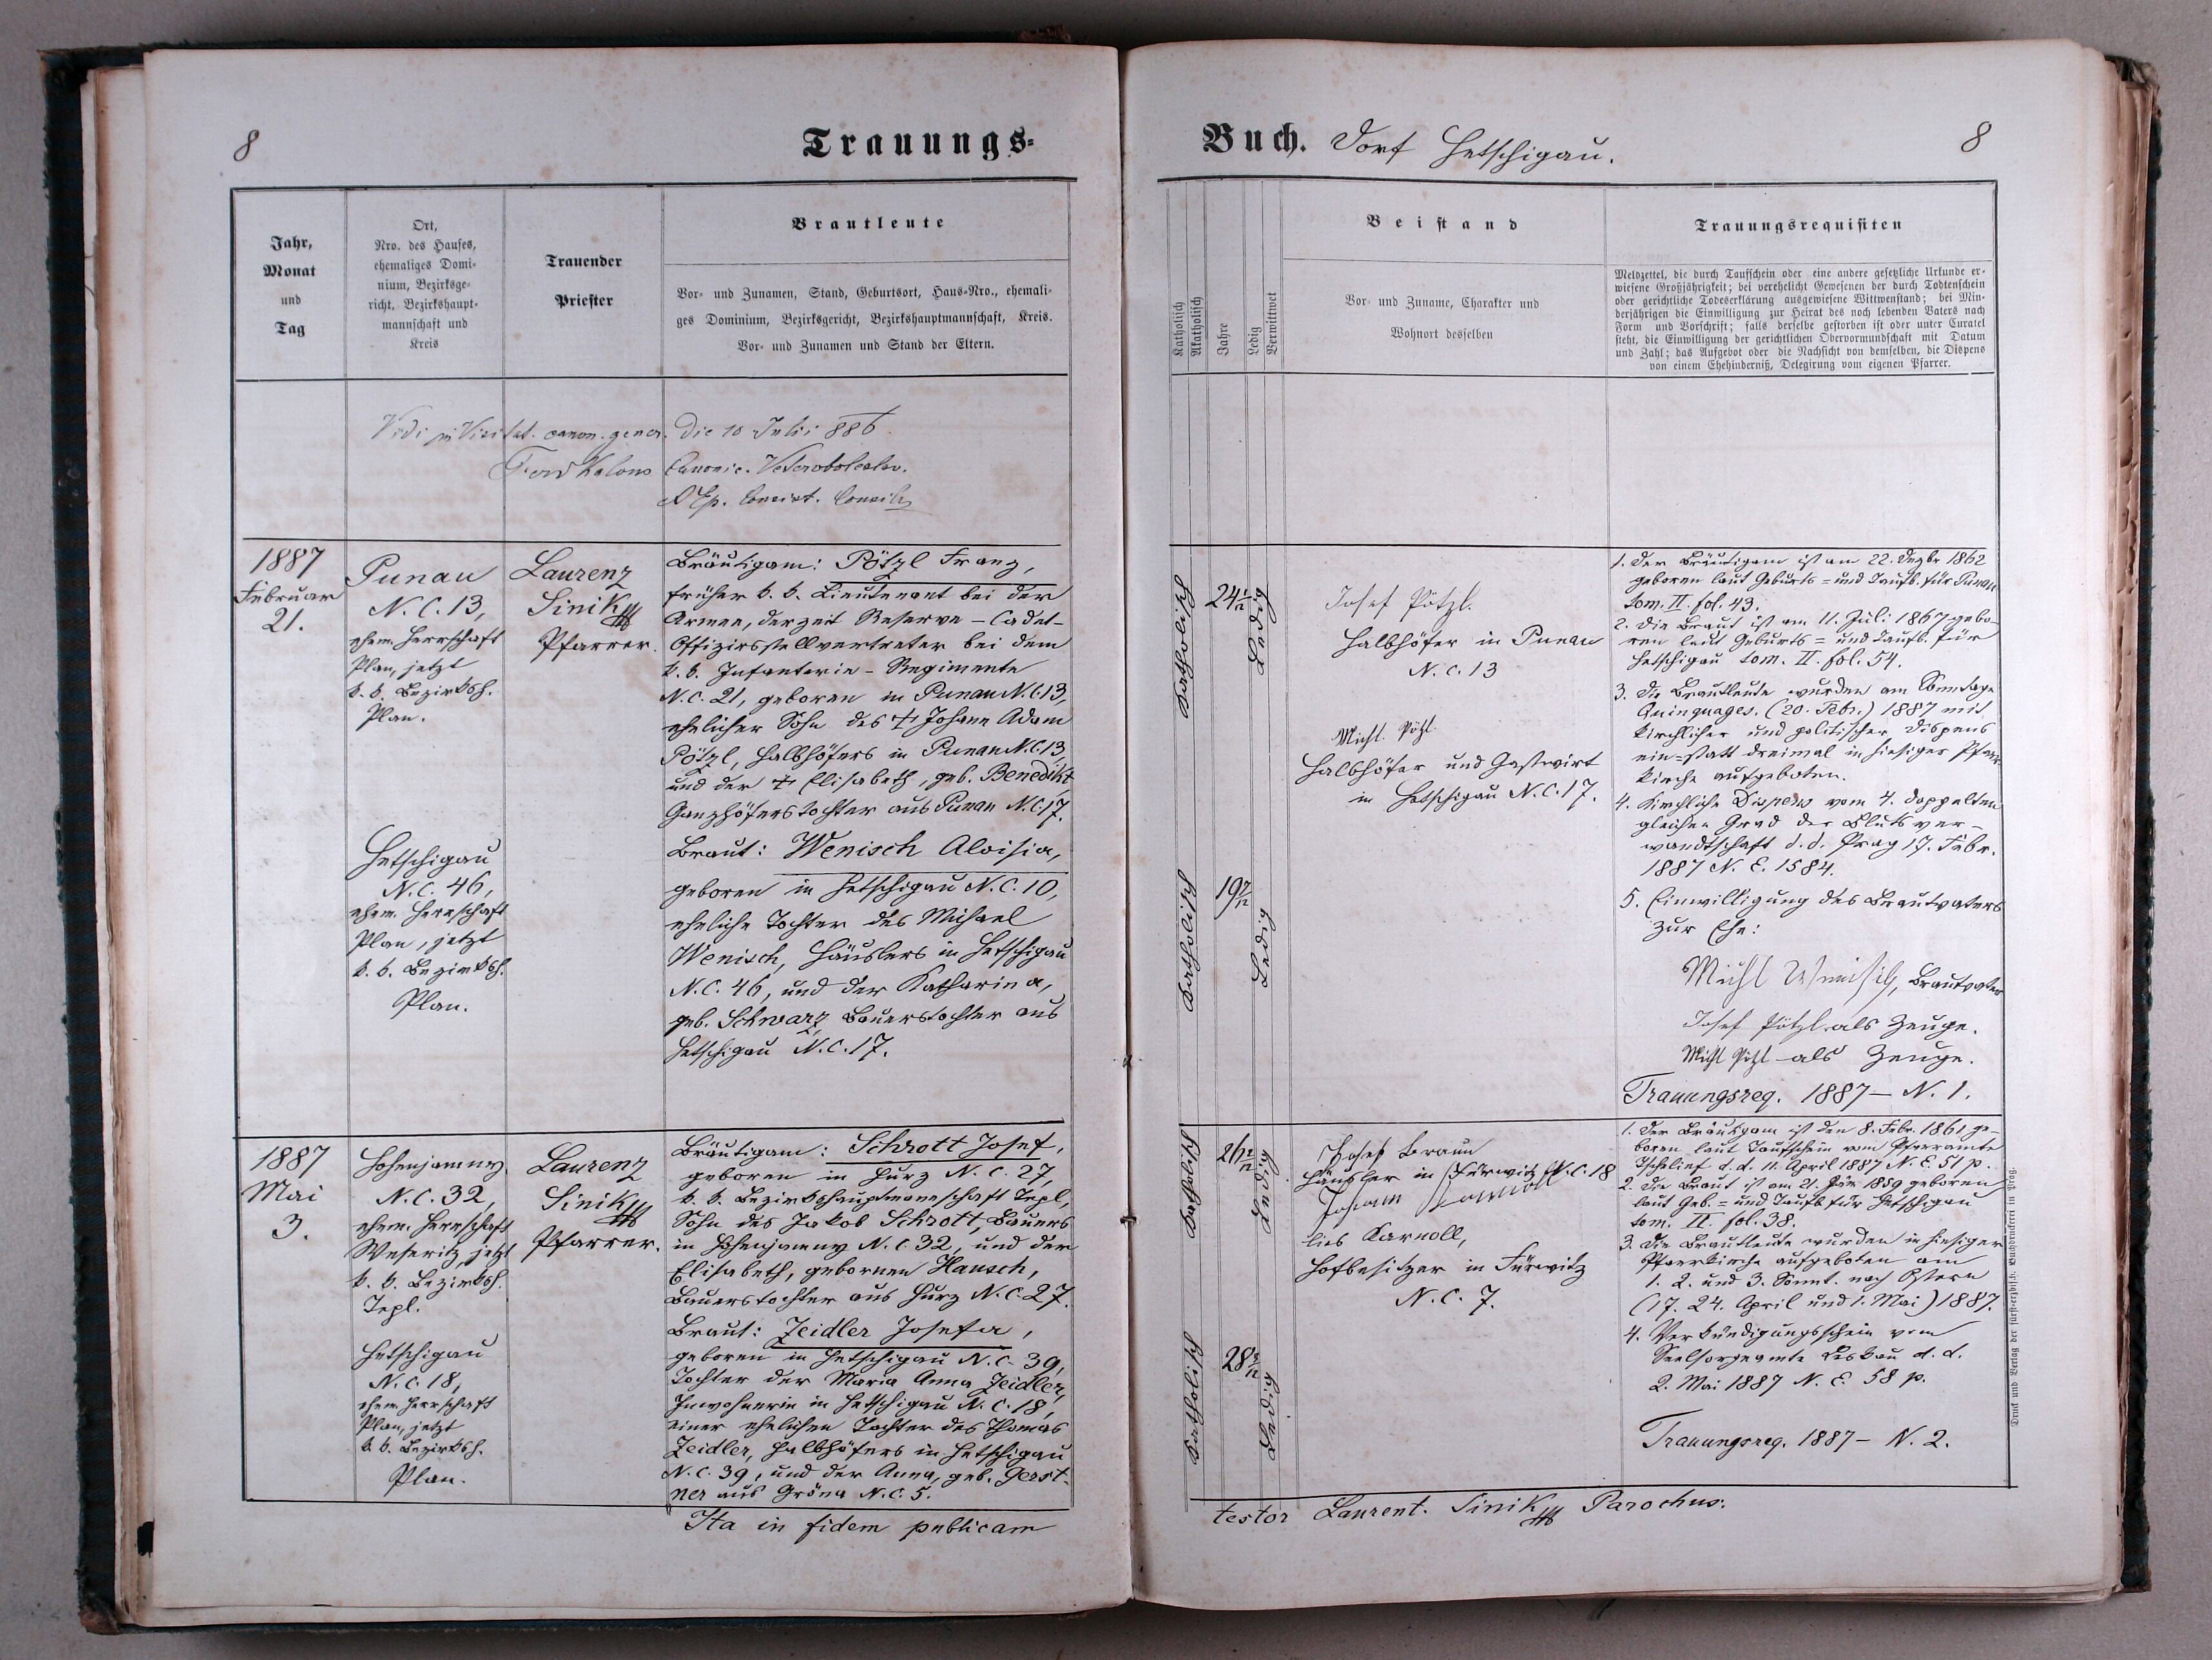 8
Trauungs=
Jahr,
Monat
und
Tag
Ort,
Nro. des Hauses,
ehemaliges Domi-
nium, Bezirksge-
richt, Bezirkshaupt-
mannschaft und
Kreis
Trauender
Priester
Brautleute
Vor- und Zunamen, Stand, Geburtsort, Haus-Nro., ehemali-
ges Dominium, Bezirksgericht, Bezirkshauptmannschaft, Kreis.
Vor- und Zunamen und Stand der Eltern.
Vidi in Visitat. canon. gener. die 10 Julii 886
Canonic.
1887
Februar
21.
Punau
N. C. 13,
ehem. Herrschaft
Plan, jetzt
k. k. Bezirksh.
Plan.
Hetschigau
N. C. 46,
ehem. Herrschaft
Plan, jetzt
k. k. Bezirksh.
Plan.
Laurenz
Sinik
Pfarrer.
Bräutigam: Pötzl Franz,
früher k. k. Lieutenant bei der
Armee, derzeit Reserve-Cadet-
Offizirsstellvertreter bei dem
k. k. Infanterie-Regimente
N. C. 21, geboren in Punau N. C. 13,
ehelicher Sohn des † Johann Adam
Pötzl, Halbhöfers in Punau N. C. 13,
und der † Elisabeth, geb. Benedikt,
Ganzhöferstochter aus Punau N. C. 17.
Braut: Wenisch Aloisia,
geboren in Hetschigau N. C. 10,
eheliche Tochter des Michael
Wenisch, Häuslers in Hetschigau
N. C. 46, und der Katharina,
geb. Schwarz, Bauerstochter aus
Hetschigau N. C. 17.
1887
Mai
3.
Hohenjamny
N. C. 32,
ehem. Herrschaft
Weseritz, jetzt
k. k. Bezirksh.
Tepl.
Hetschigau
N. C. 18,
ehem. Herrschaft
Plan, jetzt
k. k. Bezirksh.
Plan.
Laurenz
Sinik
Pfarrer.
Bräutigam: Schrott Josef,
geboren in Hurz N. C. 27,
k. k. Bezirkshauptmannschaft Tepl,
Sohn des Jakob Schrott, Bauers
in Hohenjamny N. C. 32, und der
Elisabeth, gebornen Hausch,
Bauerstochter aus Hurz N. C. 27.
Braut: Zeidler Josefa,
geboren in Hetschigau N. C. 39,
Tochter der Maria Anna Zeidler,
Inwohnerin in Hetschigau N. C. 18,
einer ehelichen Tochter des Thomas
Zeidler, Halbhöfers in Hetschigau
N. C. 39, und der Anna, geb. Gerst-
ner aus Gröna N. C. 5.
Ita in fidem publicam
Buch. Dorf Hetschigau.
8
Katholisch
Akatholisch
Jahre
Ledig
Verwittwet
Beistand
Vor- und Zuname, Charakter und
Wohnort desselben
Trauungsrequisiten
Meldzettel, die durch Taufschein oder eine andere gesetzliche Urkunde er-
wiesene Großjährigkeit; bei verehelicht Gewesenen der durch Todtenschein
oder gerichtliche Todeserklärung ausgewiesene Wittwenstand; bei Min-
derjährigen die Einwilligung zur Heirat des noch lebenden Vaters nach
Form und Vorschrift; falls derselbe gestorben ist oder unter Curatel
steht, die Einwilligung der gerichtlichen Obervormundschaft mit Datum
und Zahl; das Aufgebot oder die Nachsicht von demselben, die Dispens
von einem Ehehinderniß, Delegirung vom eigenen Pfarrer.
Katholisch
24 1/12
Ledig
Katholisch
19 7/12
Ledig
Josef Pötzl.
Halbhöfer in Punau
N. C. 13
Michl Pötzl
Halbhöfer und Gastwirt
in Hetschigau N. C. 17.
1. Der Bräutigam ist am 22. Dezbr 1862
geboren laut Geburts- und Taufb. für Punau
tom. II. fol. 43.
2. Die Braut ist am 11. Juli 1867 gebo-
ren laut Geburts- und Taufb. für
Hetschigau tom. II. fol. 54.
3. Die Brautleute wurden am Sonntage
Quinquages. (20. Febr.) 1887 mit
kirchlicher und politischer Dispens
ein- statt dreimal in hiesiger Pfarr-
kirche aufgeboten.
4. Kirchliche Dispens vom 4. doppelten
gleichen Grad der Blutsver-
wandtschaft d. d. Prag 17. Febr.
1887 N. E. 1584.
5. Einwilligung des Brautvaters
zur Ehe:
Michl Wenisch, Brautvater
Josef Pötzl als Zeuge.
Michl Pötzl als Zeuge.
Trauungsreq. 1887 – N. 1.
Katholisch
Ledig
Katholisch
Ledig
Josef Braun
Häusler in Fürwitz N. C. 18
Johann
lies Karnoll,
Hofbesitzer in Fürwitz
N. C. 7.
1. Der Bräutigam ist den 8. Febr. 1861 ge-
boren laut Taufschein vom Pfarramte
Tschelief d. d. 11. April 1887 N. E. 51 p.
2. Die Braut ist am 21. 1859 geboren
laut Geb.- und Taufb. für Hetschigau
tom. II. fol. 38.
3. Die Brautleute wurden in hiesiger
Pfarrkirche aufgeboten am
1. 2. und 3. Sonnt. nach Ostern
(17. 24. April und 1. Mai) 1887.
4. Verkündigungsschein vom
Seelsorgeamte Leskau d. d.
2. Mai 1887 N. E. 58 p.
Trauungsreq. 1887 – N. 2.
testor Laurent. Sinik Parochus.
Druck und Verlag der fürst-erzbisch. Buchdruckerei in Prag.